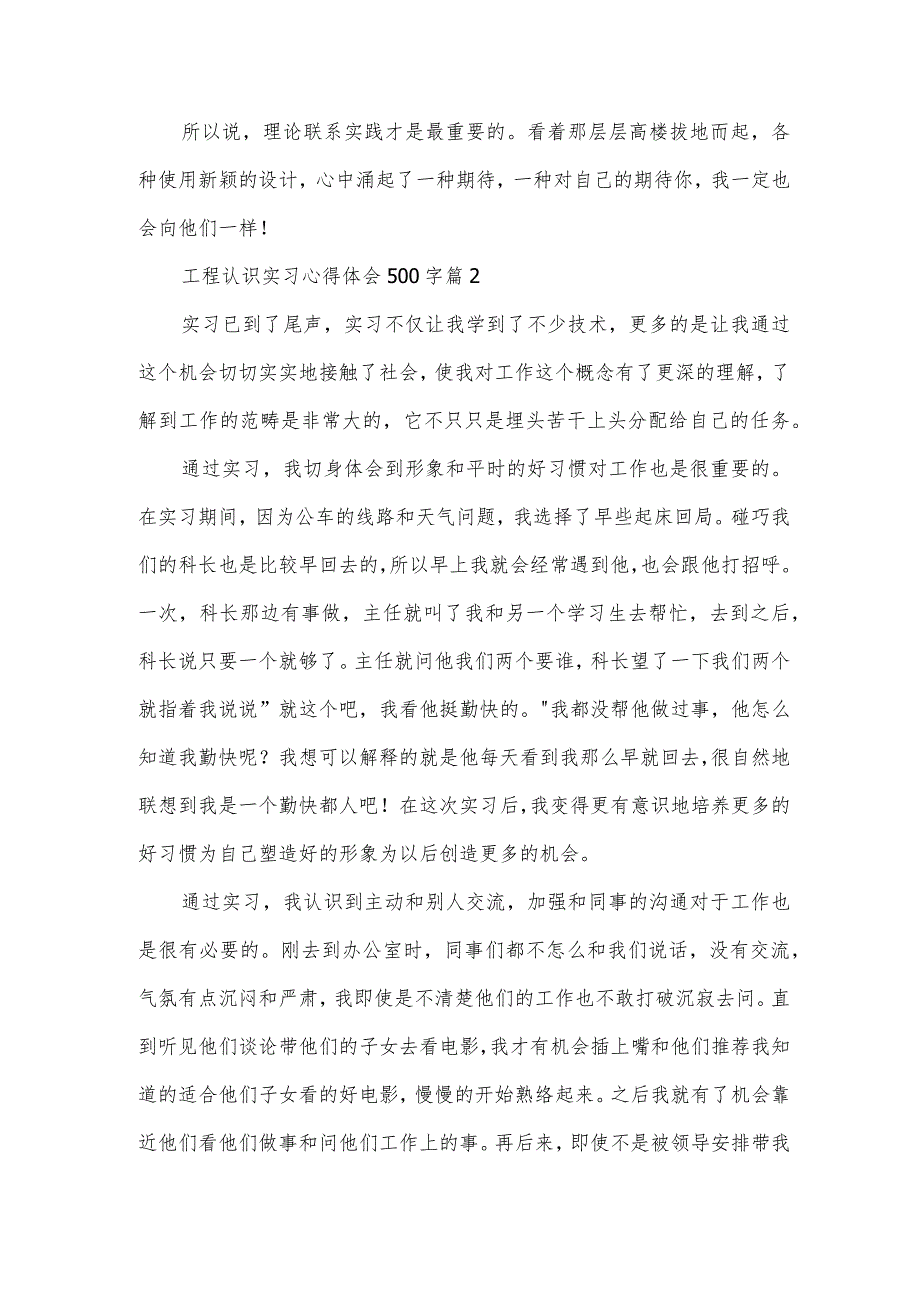 所以说，理论联系实践才是最重要的。看着那层层高楼拔地而起，各
种使用新颖的设计，心中涌起了一种期待，一种对自己的期待你，我一定也
会向他们一样！
工程认识实习心得体会 500 字篇 2
实习已到了尾声，实习不仅让我学到了不少技术，更多的是让我通过
这个机会切切实实地接触了社会，使我对工作这个概念有了更深的理解，了
解到工作的范畴是非常大的，它不只只是埋头苦干上头分配给自己的任务。
通过实习，我切身体会到形象和平时的好习惯对工作也是很重要的。
在实习期间，因为公车的线路和天气问题，我选择了早些起床回局。碰巧我
们的科长也是比较早回去的，所以早上我就会经常遇到他，也会跟他打招呼。
一次，科长那边有事做，主任就叫了我和另一个学习生去帮忙，去到之后，
科长说只要一个就够了。主任就问他我们两个要谁，科长望了一下我们两个
就指着我说说”就这个吧，我看他挺勤快的。"我都没帮他做过事，他怎么
知道我勤快呢？我想可以解释的就是他每天看到我那么早就回去，很自然地
联想到我是一个勤快都人吧！在这次实习后，我变得更有意识地培养更多的
好习惯为自己塑造好的形象为以后创造更多的机会。
通过实习，我认识到主动和别人交流，加强和同事的沟通对于工作也
是很有必要的。刚去到办公室时，同事们都不怎么和我们说话，没有交流，
气氛有点沉闷和严肃，我即使是不清楚他们的工作也不敢打破沉寂去问。直
到听见他们谈论带他们的子女去看电影，我才有机会插上嘴和他们推荐我知
道的适合他们子女看的好电影，慢慢的开始熟络起来。之后我就有了机会靠
近他们看他们做事和问他们工作上的事。再后来，即使不是被领导安排带我